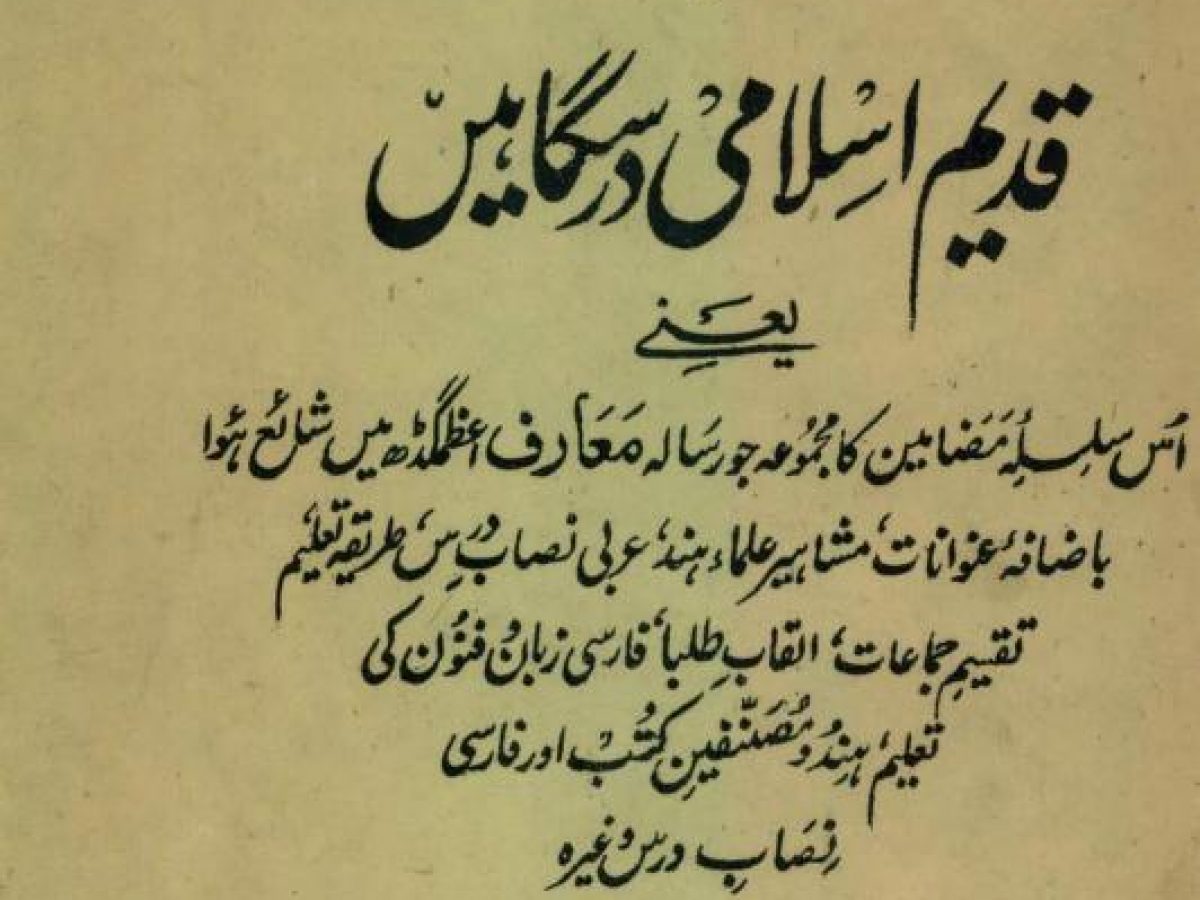 قدیم اسلامی درسگاہیں
یعنے
اُس سلسلۂ مَضامین کا مجموُعہ جو رسَالہ مَعَارف اعظمگڈھ میں شائع ہُوا
باضافۂ عنوانات، مشاہیر علماء ہند، عربی نصاب درس، طریقہ تعلیم
تقسیمِ جماعات، القابِ طلبا، فارسی زبان و فنوُن کی
تعلیم، ہندُو مُصَنّفینِ کُتُب اور فارسی
نِصَابِ درس وغیرہ